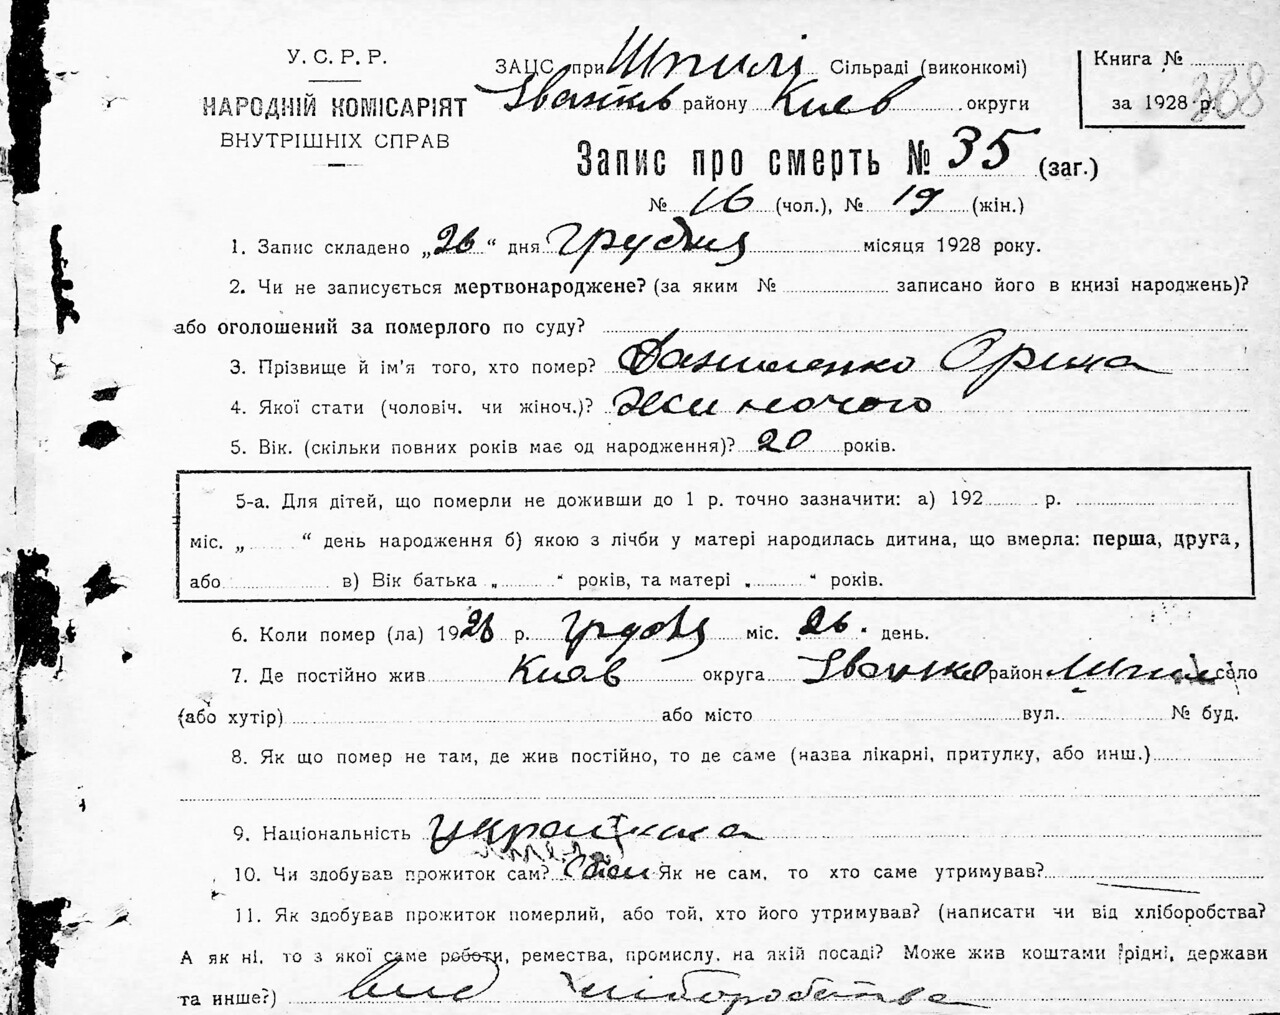 У.С.Р.Р.
НАРОДНІЙ КОМІСАРІЯТ
ВНУТРІШНІХ СПРАВ
ЗАЦС при Шпилі Сільраді (виконкомі)
Іванків району Киев округи
Книга №
за 1928 р. 388
Запис про смерть № 35 (заг.)
№ 16 (чол.), № 19 (жін.)
1. Запис складено „26“ дня грудня місяця 1928 року.
2. Чи не записується мертвонароджене? (за яким № записано його в книзі народжень)?
або оголошений за померлого по суду?
3. Прізвище й ім’я того, хто помер? Даниленко Орина
4. Якої стати (чоловіч. чи жіноч.)? Жиночого
5. Вік. (скільки повних років має од народження)? 20 років.
5-а. Для дітей, що померли не доживши до 1 р. точно зазначити: а) 192 р.
міс. „ “ день народження б) якою з лічби у матері народилась дитина, що вмерла: перша, друга,
або в) Вік батька „ “ років, та матері „ “ років.
6. Коли помер (ла) 1928 р. грудня міс. 26 день.
7. Де постійно жив Киев округа Іванків район Шпилі село
(або хутір) або місто вул. № буд.
8. Як що помер не там, де жив постійно, то де саме (назва лікарні, притулку, або инш.)
9. Національність українка
10. Чи здобував прожиток сам? Сам Як не сам, то хто саме утримував?
11. Як здобував прожиток померлий, або той, хто його утримував? (написати чи від хліборобства?
А як ні, то з якої саме роботи, ремества, промислу, на якій посаді? Може жив коштами рідні, держави
та инше?) вид хліборобства